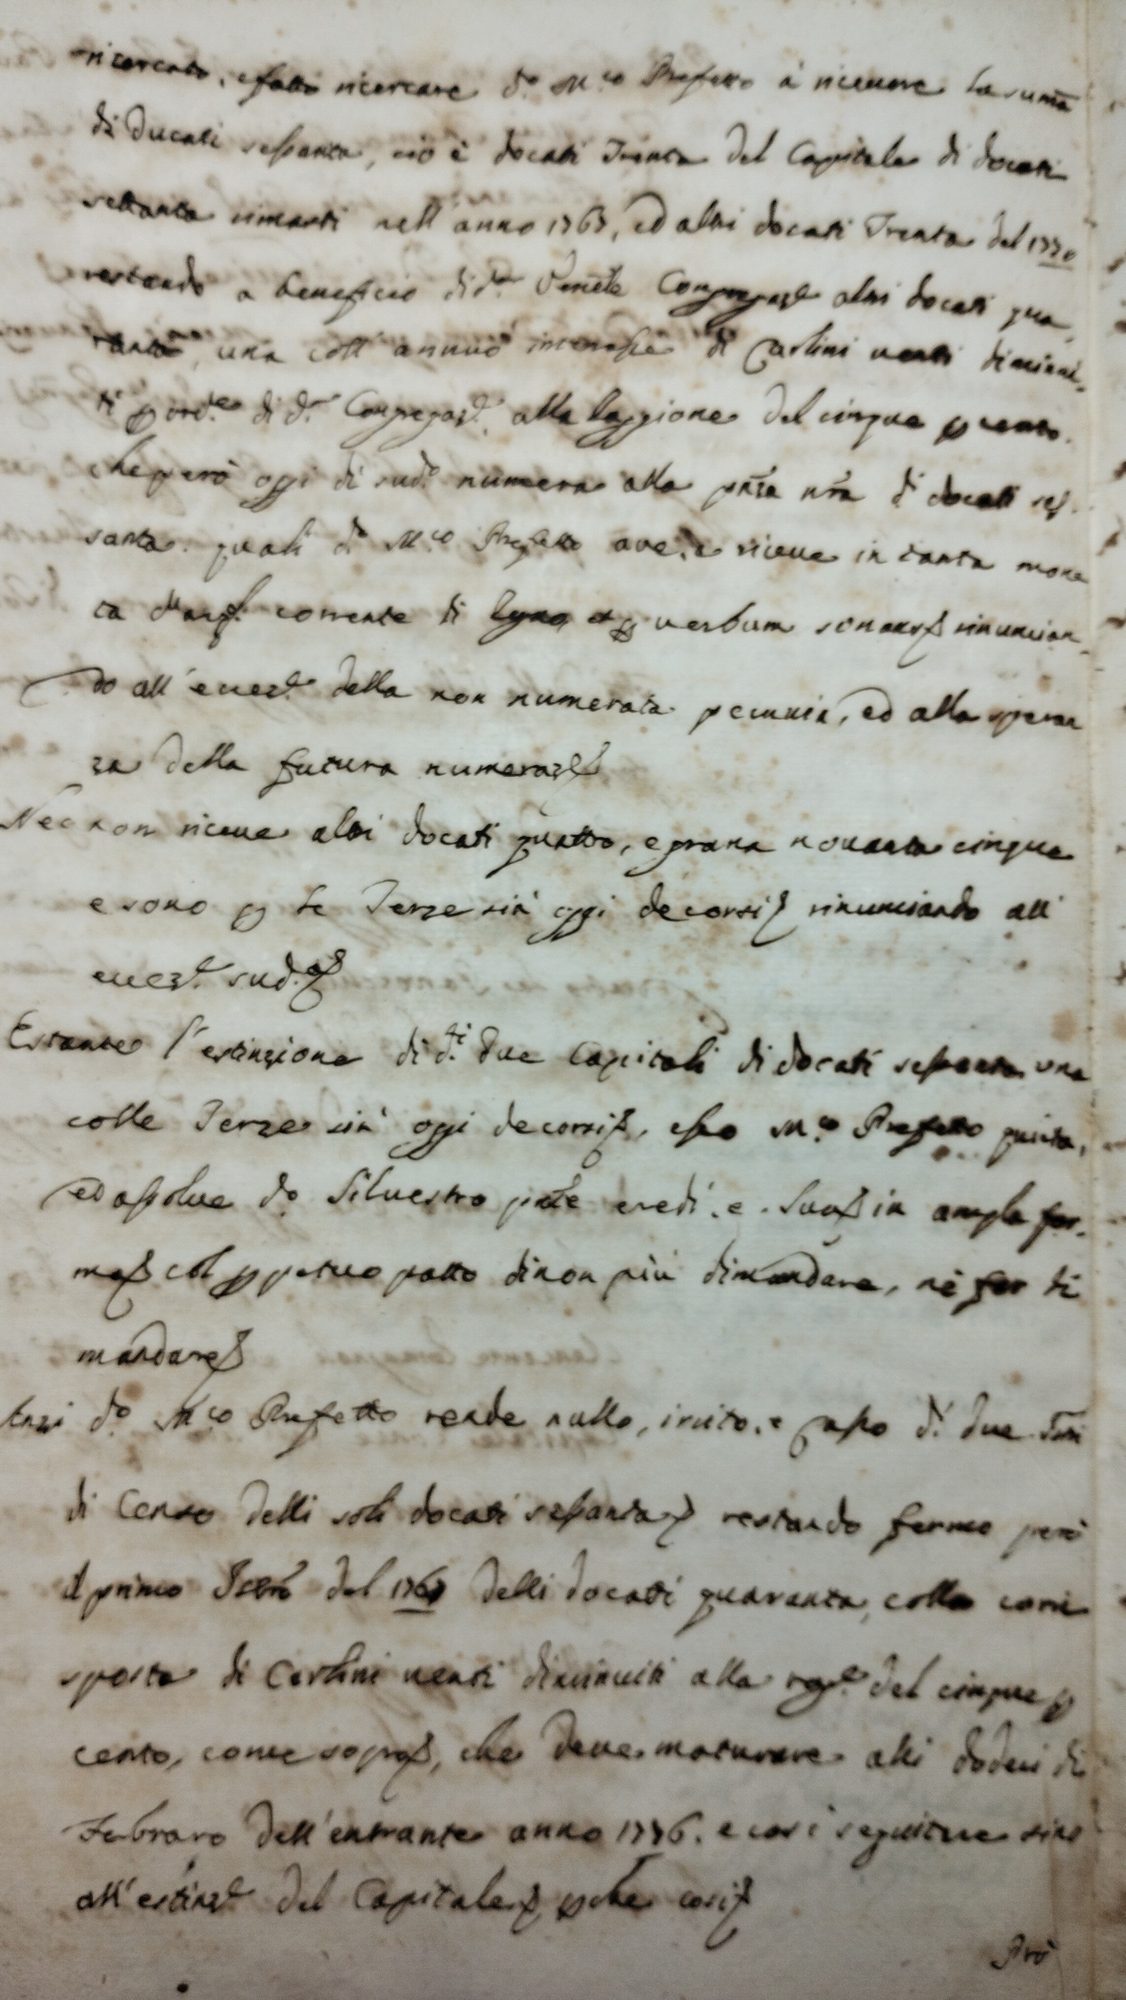 ricercato, e fatto ricercare d.o M.co Prefetto à ricevere la sum̃a
di Ducati sessanta, cio è docati Trenta del Capitale di docati
settanta rimasti nell'anno 1767, ed altri docati Trenta del 1770
restando a beneficio di d.a Ven̄le Congregaz.e altri docati qua
ranta, una coll'annuo interesse di Carlini venti diminui-
ti p ord.e di d.a Congregaz.e alla raggione del cinque p cento.
che però oggi dì sud.o numera alla pn̄za nr̄a d.i docati ses-
santa. quali d.o M.co Prefetto ave, e riceve in tanta mone
ta d'arg.to corrente di Regno et p verbum sonans rinuncian-
do all'eccez.e della non numerata pecunia, ed alla speran
za della futura numeraz.e
Nec non riceve altri docati quatto, e grana novanta cinque
e sono p le Terze sin' oggi decorsi rinunciando all'
eccez.e sud.a
Estante l'estinzione di d.ti due Capitali di docati sessanta una
colle Terze sin' oggi decorsi, esso M.co Prefetto quieta,
ed assolve d.o Silvestro pn̄te eredi, e in ampla for-
ma col ppetuo patto di non più dimandare, nè far di
mandare
Anzi d.o M.co Prefetto rende nullo, irrito, e casso d.i due
di Censo delli soli docati sessanta restando fermo però
il primo Istro del 1767 delli docati quaranta, colla corri
sposta di Carlini venti diminuiti alla rag.e del cinque p
cento, come sopra, che deve maturare alli dodeci di
Febraro dell'entrante anno 1776. e così seguitue sino
all'estinz.e del Capitale pche così
Prò